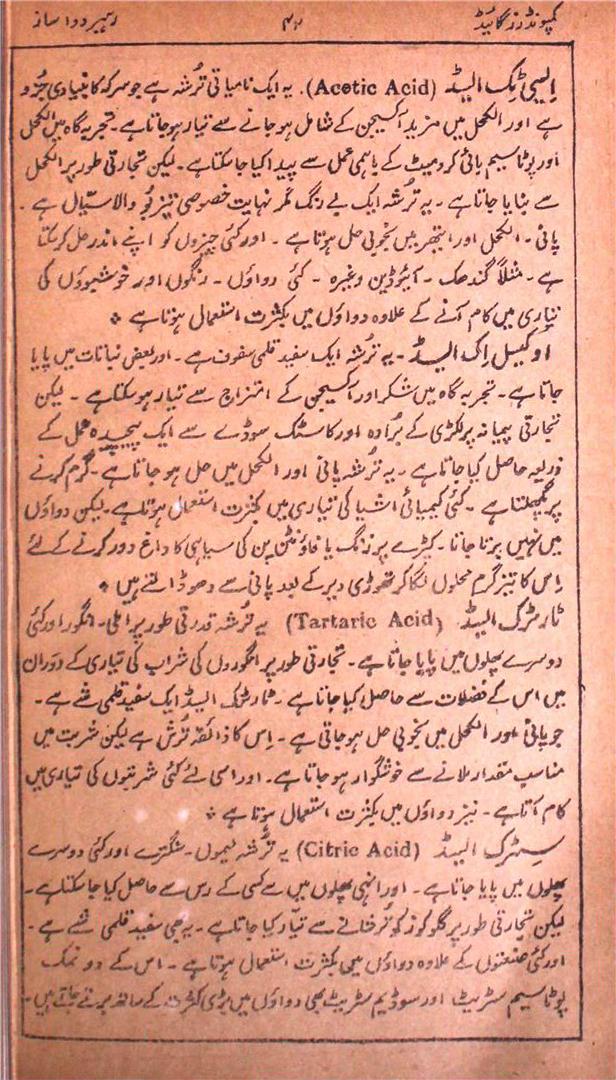 کمپونڈرز گائیڈ ۴۴ رہبر دوا ساز
ایسی ٹِک ایسڈ (Acetic Acid). یہ ایک نامیاتی تُرشہ ہے جو سرکہ کا بنیادی جُزو
ہے اور الکحل میں مزید آکسیجن کے شامل ہو جانے سے تیار ہو جاتا ہے۔ تجربہ گاہ میں الکحل
اور پوٹاسیم بائی کرومیٹ کے باہمی عمل سے پیدا کیا جا سکتا ہے۔ لیکن تجارتی طور پر الکحل
سے بنایا جاتا ہے۔ یہ تُرشہ ایک بے رنگ مگر نہایت خصوصی تیز بُو والا سیال ہے۔
پانی۔ الکحل اور ایتھر میں بخوبی حل ہوتا ہے۔ اور کئی چیزوں کو اپنے اندر حل کر سکتا
ہے۔ مثلاً گندھک۔ آئیوڈین وغیرہ۔ کئی دواؤں۔ رنگوں اور خوشبیوؤں کی
تیاری میں کام آنے کے علاوہ دواؤں میں بکثرت استعمال ہوتا ہے ٭
اوگیل اِک ایسڈ۔ یہ تُرشہ ایک سفید قلمی سفوف ہے۔ اور بعض نباتات میں پایا
جاتا ہے۔ تجربہ گاہ میں شکر اور آکسیجن کے امتزاج سے تیار ہو سکتا ہے۔ لیکن
تجارتی پیمانہ پر لکڑی کے بُرادہ اور کاسٹک سوڈے سے ایک پیچیدہ عمل کے
ذریعہ حاصل کیا جاتا ہے۔ یہ تُرشہ پانی اور الکحل میں حل ہو جاتا ہے۔ گرم کرنے
پر پگھلتا ہے۔ کئی کیمیائی اشیا کی تیاری میں بکثرت استعمال ہوتا ہے۔ لیکن دواؤں
میں نہیں برتا جاتا۔ کپڑے پر زنگ یا فاؤنٹن پن کی سیاہی کا داغ دور کرنے کے لئے
اِس کا تیز گرم محلول لگا کر تھوڑی دیر کے بعد پانی سے دھو ڈالتے ہیں ٭
ٹارٹرک ایسڈ (Tartaric Acid) یہ تُرشہ قدرتی طور پر املی۔ انگور اور کئی
دوسرے پھلوں میں پایا جاتا ہے۔ تجارتی طور پر انگوروں کی شراب کی تیاری کے دَوران
میں اس کے فضلات سے حاصل کیا جاتا ہے۔ ٹارٹرک ایسڈ ایک سفید قلمی شے ہے۔
جو پانی اور الکحل میں بخوبی حل ہو جاتی ہے۔ اِس کا ذائقہ تُرش ہے لیکن شربت میں
مناسب مقدار ملانے سے خوشگوار ہو جاتا ہے۔ اور اسی لئے کئی شربتوں کی تیاری میں
کام آتا ہے۔ نیز دواؤں میں بکثرت استعمال ہوتا ہے ٭
سٹرک ایسڈ (Citric Acid) یہ تُرشہ لیموں۔ سنگترے اور کئی دوسرے
پھلوں میں پایا جاتا ہے۔ اور انہی پھلوں میں سے کسی کے رس سے حاصل کیا جا سکتا ہے۔
لیکن تجارتی طور پر گلوکوز کو تُرخانے سے تیّار کیا جاتا ہے۔ یہ بھی سفید قلمی شے ہے۔
اور کئی صنعتوں کے علاوہ دواؤں میں بکثرت استعمال ہوتا ہے۔ اس کے دو نمک
پوٹاسیم سٹریٹ اور سوڈیم سٹریٹ بھی دواؤں میں بڑی کثرت کے ساتھ برتے جاتے ہیں۔